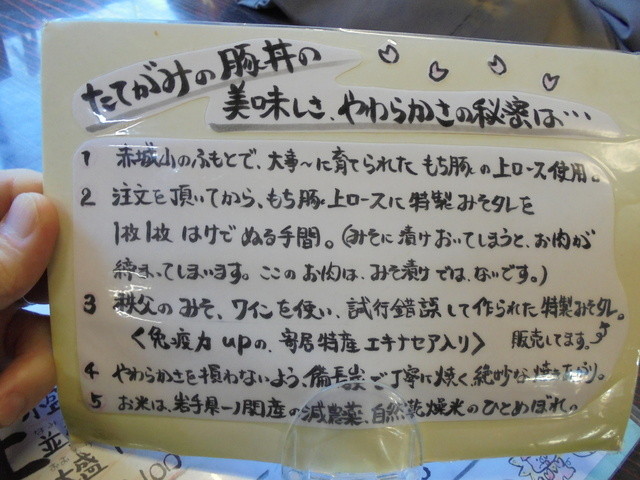 たてがみの豚丼の
美味しさ、やわらかさの秘密は…
1 赤城山のふもとで、大事～に育てられた もち豚の上ロース使用。
2 注文を頂いてから、もち豚上ロースに特製みそタレを
1枚1枚 はけで ぬる手間。(みそに漬けおいてしまうと、お肉が
締まってしまいます。ここのお肉は、みそ漬けでは、ないです。)
3 秩父のみそ、ワインを使い、試行錯誤して作られた特製みそタレ。
〈免疫力upの、寄居特産エキナセア入り〉 販売してます。
4 やわらかさを損わないよう、備長炭で丁寧に焼く、絶妙な焼き
5 お米は、岩手県一ノ関産の減農薬、自然乾燥米のひとめぼれ。
並
大盛